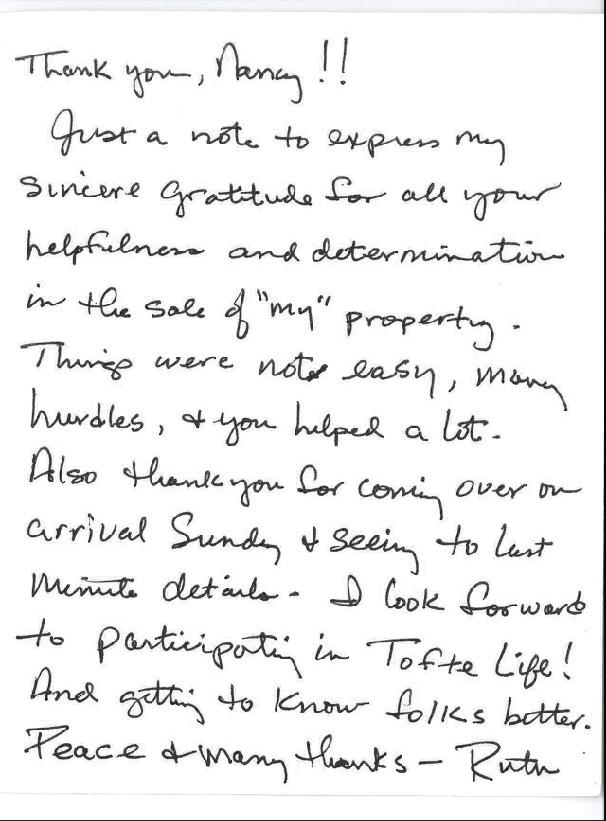 Thank you, Nancy!!
Just a note to express my
sincere gratitude for all your
helpfulness and determination
in the sale of "my" property.
Things were not easy, many
hurdles, & you helped a lot.
Also thank you for coming over on
arrival Sunday & seeing to last
minute details. I look forward
to participating in Tofte Life!
And getting to know folks better.
Peace & many thanks – Ruth